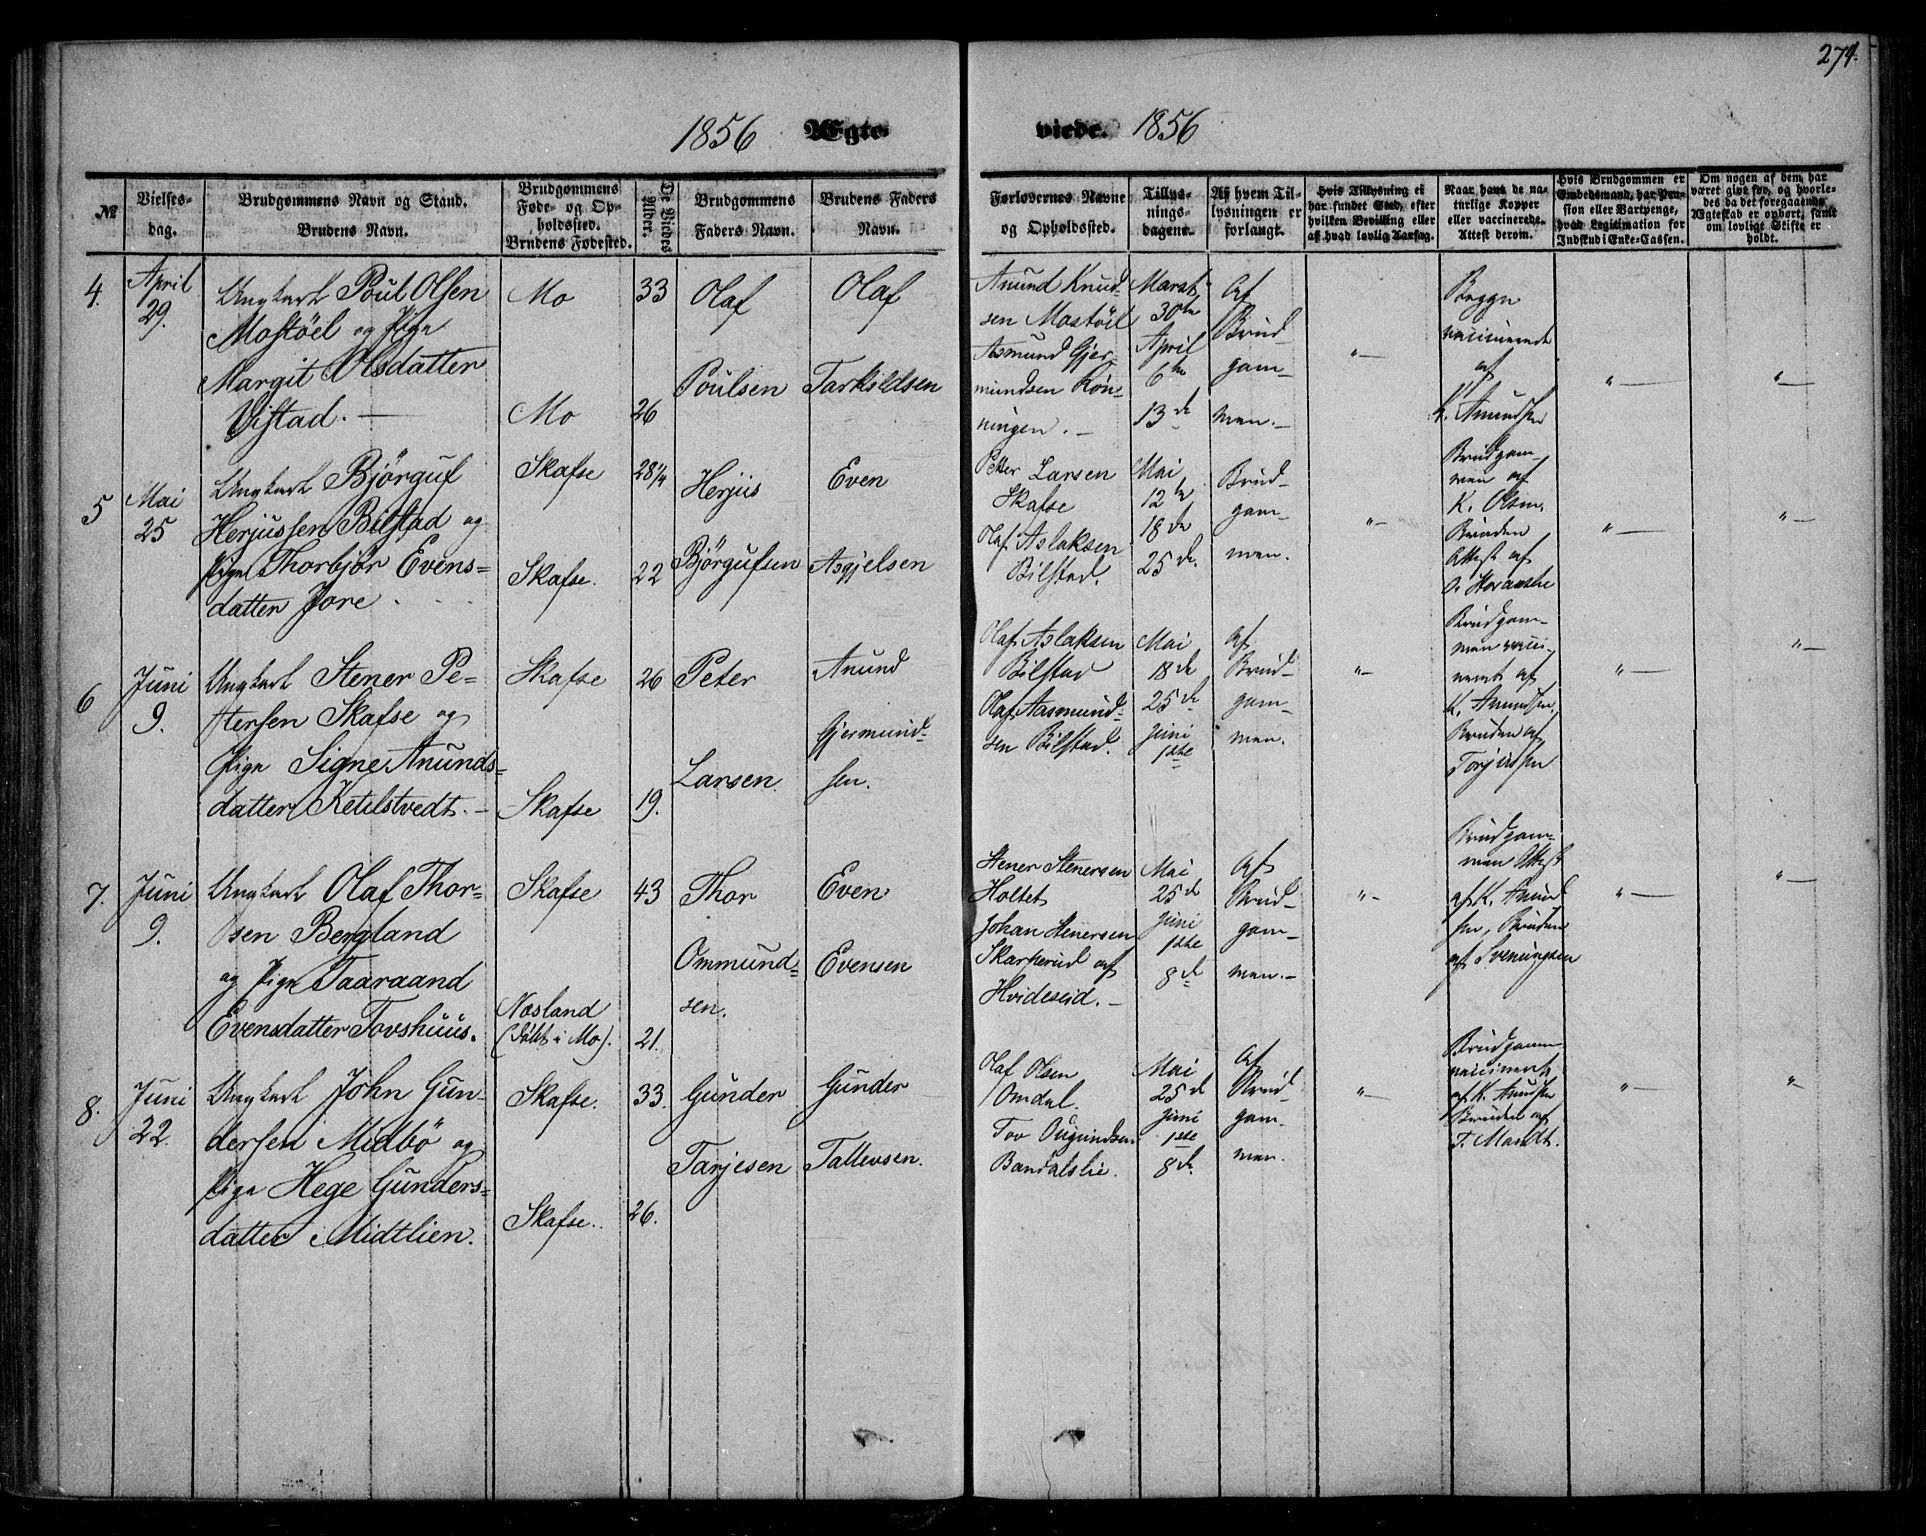 274.
1856 Ægte-
viede. 1856
№
Vielses-
dag.
Brudgommens Navn og Stand.
Brudens Navn.
Brudgommens
Føde- og Op-
holdssted.
Brudens Fødested.
De Viedes
Alder.
Brudgommens
Faders Navn.
Brudens Faders
Navn.
Forlovernes Navne
og Opholdssted.
Tillys-
nings-
dagene.
Af hvem Til-
lysningen er
forlangt.
Hvis Tillysning ei
har fundet Sted, efter
hvilken Bevilling eller
af hvad lovlig Aarsag.
Naar havt de na-
turlige Kopper
eller vaccinerede.
Attest derom.
Hvis Brudgommen er
Embedsmand, har Pen-
sion eller Vartpenge,
hvad Legitimation for
Indskud i Enke-Cassen.
Om nogen af dem har
været givt før, og hvorle-
des da det foregaaende
Ægteskab er ophørt, samt
om lovligt Skifte er
holdt.
4.
April
29.
Ungkarl Poul Olsen
Mostøel og Pige
Margit Olsdatter
Vistad. —
Mo
Mo
33
26
Olaf
Poulsen
Olaf
Tarkildsen
Anund Knud-
sen Mostöil
Asmund Gjer-
mundsen Rön-
ningen. —
Marat
30te
April
6te
13de
Af
Brud-
gom-
men. —
" —
Begge
vaccinerede
af
K. Amundsen
" —
" —
5
Mai
25
Ungkarl Björguf
Herjussen Bilstad og
Pige Thorbjør Evens-
datter Jore
Skafse
Skafse.
28 1/4
22
Herjus
Björgufsen
Even
Asgjelsen
Petter Larsen
Skafse
Olaf Aslaksen
Bilstad.
Mai
12te
18de
25de.
Brud-
gom-
men.
" —
Brudgom-
men af
K. Olsen,
Bruden
Attest af
" —
" —
6
Juni
9.
Ungkarl Stener Pe-
tersen Skafse og
Pige Signe Anunds-
datter Ketilstvedt. —
Skafse
Skafse
26
19.
Peter
Larsen.
Anund
Gjermund-
sen.
Olaf Aslaksen
Bilstad
Olaf Aasmund-
sen Bilstad.
Mai
18de
25de
Juni
1ste
Af
Brud-
gom-
men.
" —
Brudgom-
men vacci-
neret af
K. Amundsen,
Bruden af
Torjussen
" —
" —
7.
Juni
9.
Ungkarl Olaf Thor-
sen Bergland
og Pige Taaraand
Evensdatter Tovshuus.
Skafse
Nesland
(født i Mo).
43
21.
Thor
Ommund-
sen.
Even
Evensen
Stener Stenersen
Holtet
Johan Stenersen
Skarperud af
Hvideseid. —
Mai
25de
Juni
1ste
8de
Af
Brud-
gom-
men. —
" -
Brudgom-
men Attest
af K. Amund
sen, Bruden
af Sveningsen
" —
" —
8.
Juni
22.
Ungkarl John Gun-
dersen Midbö og
Pige Hege Gunders-
datter Midtlien.
Skafse.
Skafse.
33.
26.
Gunder
Tarjesen
Gunder
Tallevsen.
Olaf Olsen
Omdal.
Tov Ougundsen
Bandakslie.
Mai
25de
Juni
1ste
8de
Af
Brud-
gom-
men.
" —
Brudgommen
vaccineret
af K. Amundsen
Bruden af
T. Mandt.
" —
" —